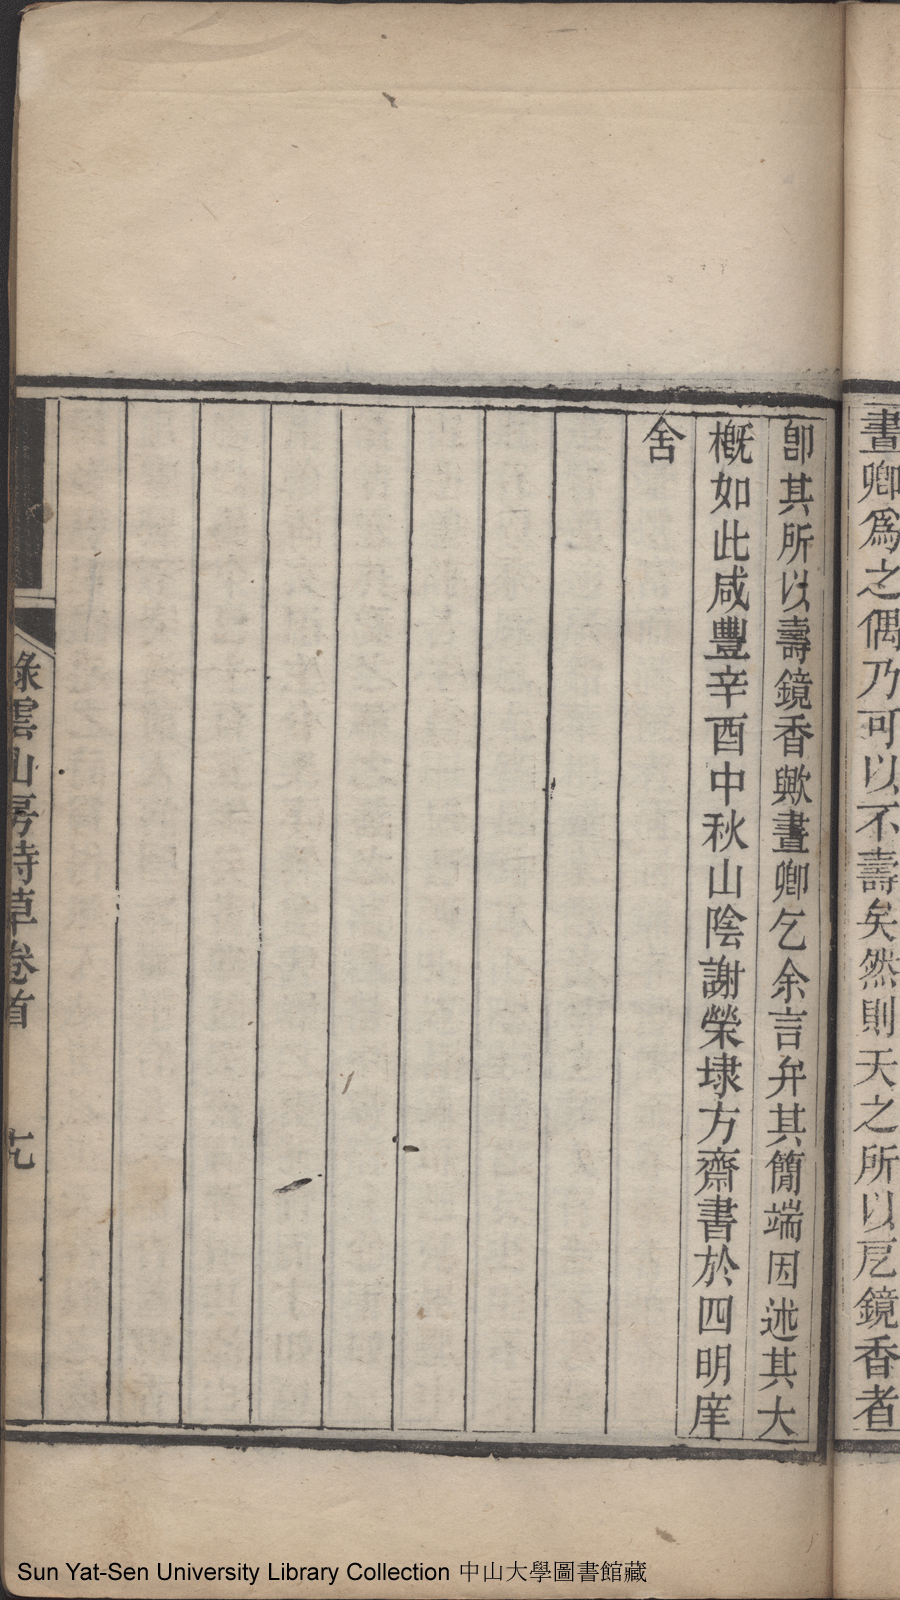 畫卿爲之偶乃可以不壽矣然則天之所以巵鏡香者
卽其所以壽鏡香歟畫卿乞余言弁其簡端因述其大
槪如此咸豐辛酉中秋山陰謝榮埭方齋書於四明庠
舍
綠雲山房詩草卷首
九
Sun Yat-Sen University Library Collection 中山大學圖書館藏